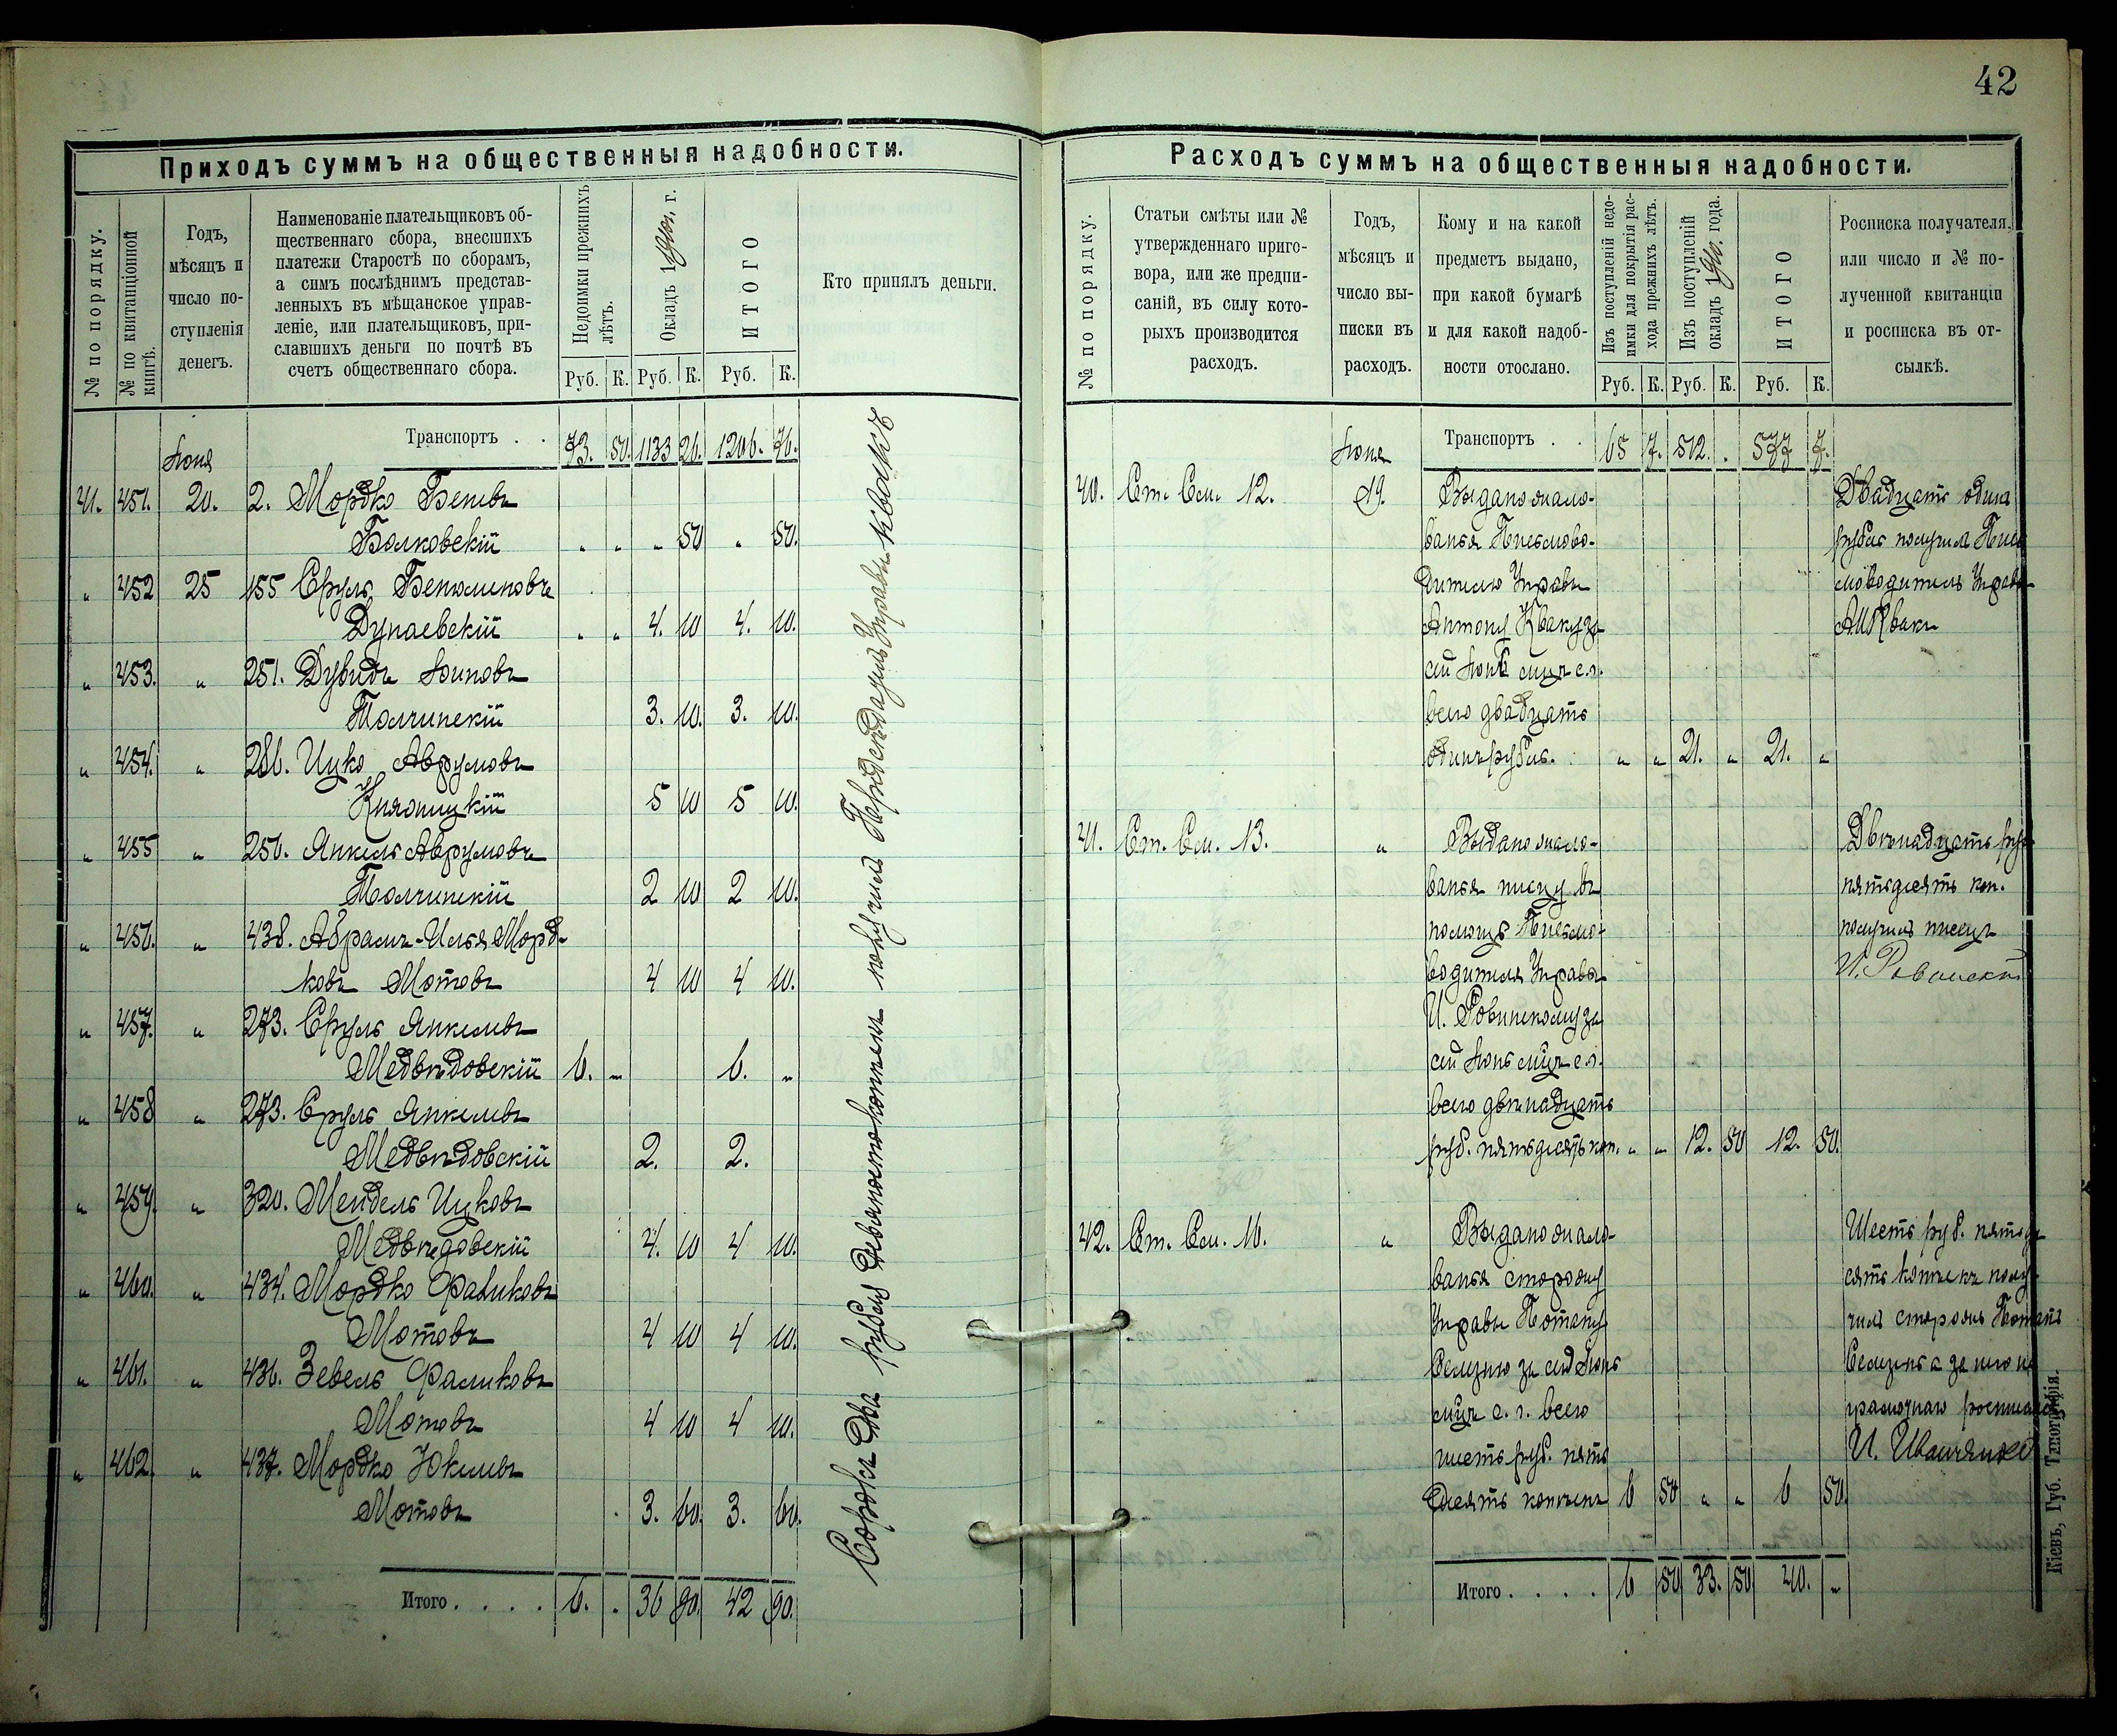 42
Приходъ суммъ на общественныя надобности.
№ по порядку.
№ по квитанціонной книгѣ.
Годъ,
мѣсяцъ и
число по-
ступленія
денегъ.
Наименованіе плательщиковъ об-
щественнаго сбора, внесшихъ
платежи Старостѣ по сборамъ,
а симъ послѣднимъ представ-
ленныхъ въ мѣщанское управ-
леніе, или плательщиковъ, при-
славшихъ деньги по почтѣ въ
счетъ общественнаго сбора.
Недоимки прежнихъ
лѣтъ.
Окладъ 1 г.
ИТОГО
Кто принялъ деньги.
Руб. К. Руб. К. Руб. К.
Транспортъ . . 73. 50. 1133 26. 1206. 76.
Іюня
41. 451. 20. 2. Мордко Беньв
Волковскій " " " 50 " 50.
" 452 25 155 Сруль Беньяминовъ
Дунаевскій " " 4. 10 4. 10.
" 453. " 251. Дувидъ
Толчинскій 3. 10. 3. 10.
" 454. " Ицко Аврумовъ
Княжицкій 5 10 5 10.
" 455 " 250. Янкель Аврумовъ
Толчинскій 2 10 2 10.
" 456. " 438. Абрамъ-Илья Морд-
ковъ Мотовъ 4 10 4 10.
" 457. " 273. Сруль Янкелевъ
Медвѣдовскій 6. " 6. "
" 458 " 273. Сруль Янкелевъ
Медвѣдовскій 2. 2.
" 459. " 320. Мендель Ицковъ
Медвѣдовскій 4. 10 4 10.
" 460. " 434. Мордко Фаликовъ
Мотовъ 4 10 4 10.
" 461. " 436. Зевель Фаликовъ
Мотовъ 4 10 4 10.
" 462. " 437. Мордко Юкелевъ
Мотовъ 3. 60. 3. 60.
Итого . . . . 6. . 36 90. 42 90.
Сорокъ два рубля девяносто копѣекъ получилъ Предсѣдатель Управы
Расходъ суммъ на общественныя надобности.
№ по порядку.
Статьи смѣты или №
утвержденнаго приго-
вора, или же предпи-
саній, въ силу кото-
рыхъ производится
расходъ.
Годъ,
мѣсяцъ и
число вы-
писки въ
расходъ.
Кому и на какой
предметъ выдано,
при какой бумагѣ
и для какой надоб-
ности отослано.
Изъ поступленій недо-
имки для покрытія рас-
хода прежнихъ лѣтъ.
Изъ поступленій
окладъ 1 года.
ИТОГО
Росписка получателя,
или число и № по-
лученной квитанціи
и росписка въ от-
сылкѣ.
Руб. К. Руб. К. Руб. К.
Іюня Транспортъ . . 65 7. 512. . 577 7.
40. Ст. См. 12. 19. Выдано жало- Двадцать одинъ
ванья Письмово- рубль получилъ Пись
дителю Управы моводитель Управы
Антону Кваку за
сей Іюнь мцъ с.г.
всего двадцать
одинъ рубль. " " 21. " 21. "
41. Ст. См. 13. " Выдано жало- Двѣнадцать руб.
ванья писцу въ пятьдесятъ коп.
помощь Письмо- получилъ писецъ
водителя Управы
И. Ровинскому за
сей Іюнь мцъ с.г.
всего двѣнадцать
руб. пятьдесятъ коп. " " 12. 50 12. 50.
42. Ст. См. 16. " Выдано жало- Шесть руб. пятьде
ванья сторожу сятъ копѣекъ полу
Управы Потапу чилъ сторожъ Потапъ
за сей Іюнь а за него не
мцъ с. г. всего грамотнаго росписался
шесть руб. пять
десятъ копѣекъ 6 50 " " 6 50.
Итого . . . . 6 50 33. 50 40. "
Кіевъ, Губ. Типографія.